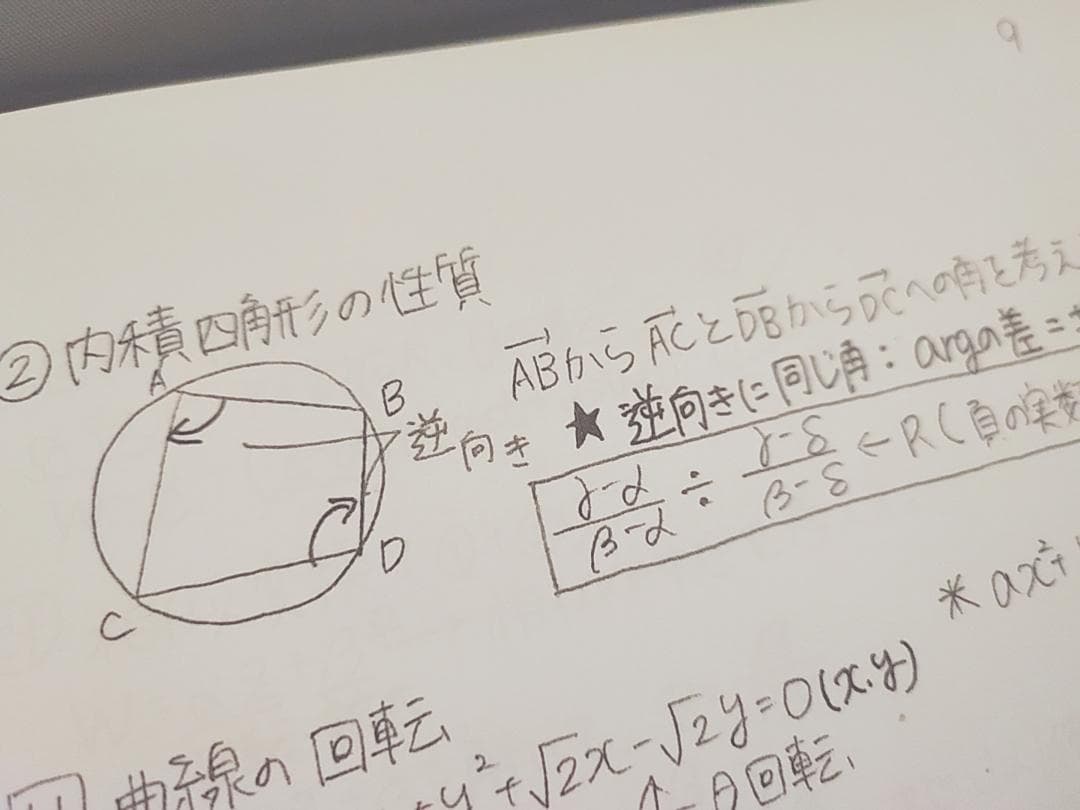 9
② 内積四角形の性質
A
B
C
D
逆向き
ABからACとDBからDCへの角を考え
★逆向きに同じ角：argの差=
γ-α/β-α ÷ γ-δ/β-δ ← R(負の実数
* ax²+
曲線の回転
y²+√2x-√2y=0(x.y)
↑-θ回転